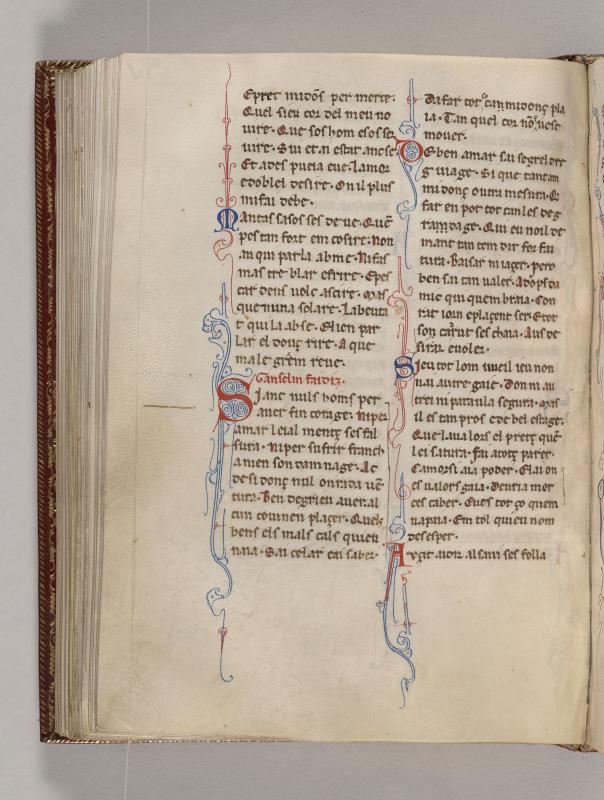 E pret midõs per merce.
Quel sieu cor del meu no
uire. Que sos hom e sos ser
uire. Sui et ai estat ancse
Et ades pueia e ue. lamor
e doblel desire. On il plus
mi fai debe.
Mantas sasos ses deue. Quẽ
pes tan fort em cosire. non
au qui parla ab me. Ni fas
mas tre blar e frire. E pes
car deus uolc ascire. mas
que nuna solare. La beuta
t qui la ab se. El ien par
lar el douç rire. A que
mal
Ganselm faidiz.
Si anc nuls homs per
auer fin corage. Ni per
amar leial mentç ses fal
sura. Ni per sufrir franch
amen son dampnage. Ac
de si donç nul onrida uẽ
tura. Ben degrieu auer al
cun couinen plaçer. Quels
bens els mals cals quieu
naia. Sai celar en saber
Da far tot can midonç pla
ia. Tan quel cor
mouer.
E ben amar sai segrel dre
g uiage. Si que tan am
mi donç outra mesura. Q̃
far en pot tot can les deg
Qui eu noil de
mant tan tem dir for fai
tura. Baisar ni iaçer. pero
ben sai tan ualer. A dops da
mic qui quem braia. Con
rat ioun e plaçent ser. E tot
son ses chaia. Aus de
sirar e uoler.
Sieu tot lom uueil ieu non
nai autre gaie. Don ni au
trei ni paraula segura. mas
il es tan pros e de bel estage.
Que laualors el pretç quẽ
lei satura. Fai a totç parer.
Camorsi aia poder. El ai on
es ualors gaia. Deuria mer
ces caber. E ues tot ço quem
napaia. Em tol quieu nom
desesper.
Auçit auor al saui ses folla